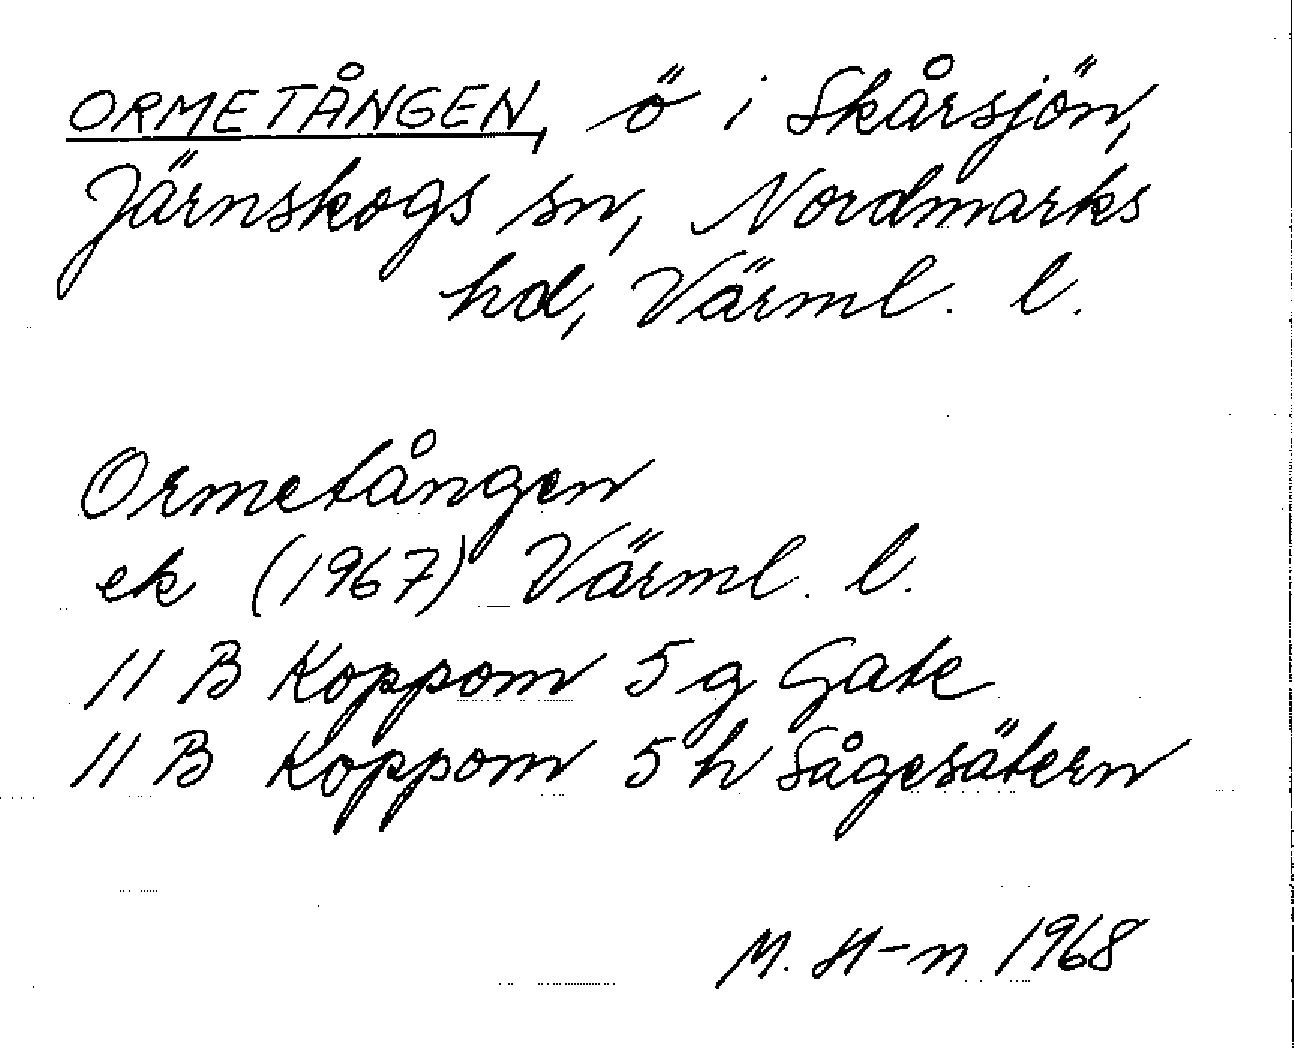 ORMETÅNGEN, ö i Skårsjön,
Järnskogs sn, Nordmarks
hd, Värml. l.
Ormetången
ek (1967) Värml. l.
11 B Koppom 5 g Gate
11 B Koppom 5 h Sågesätern
M. H-n 1968